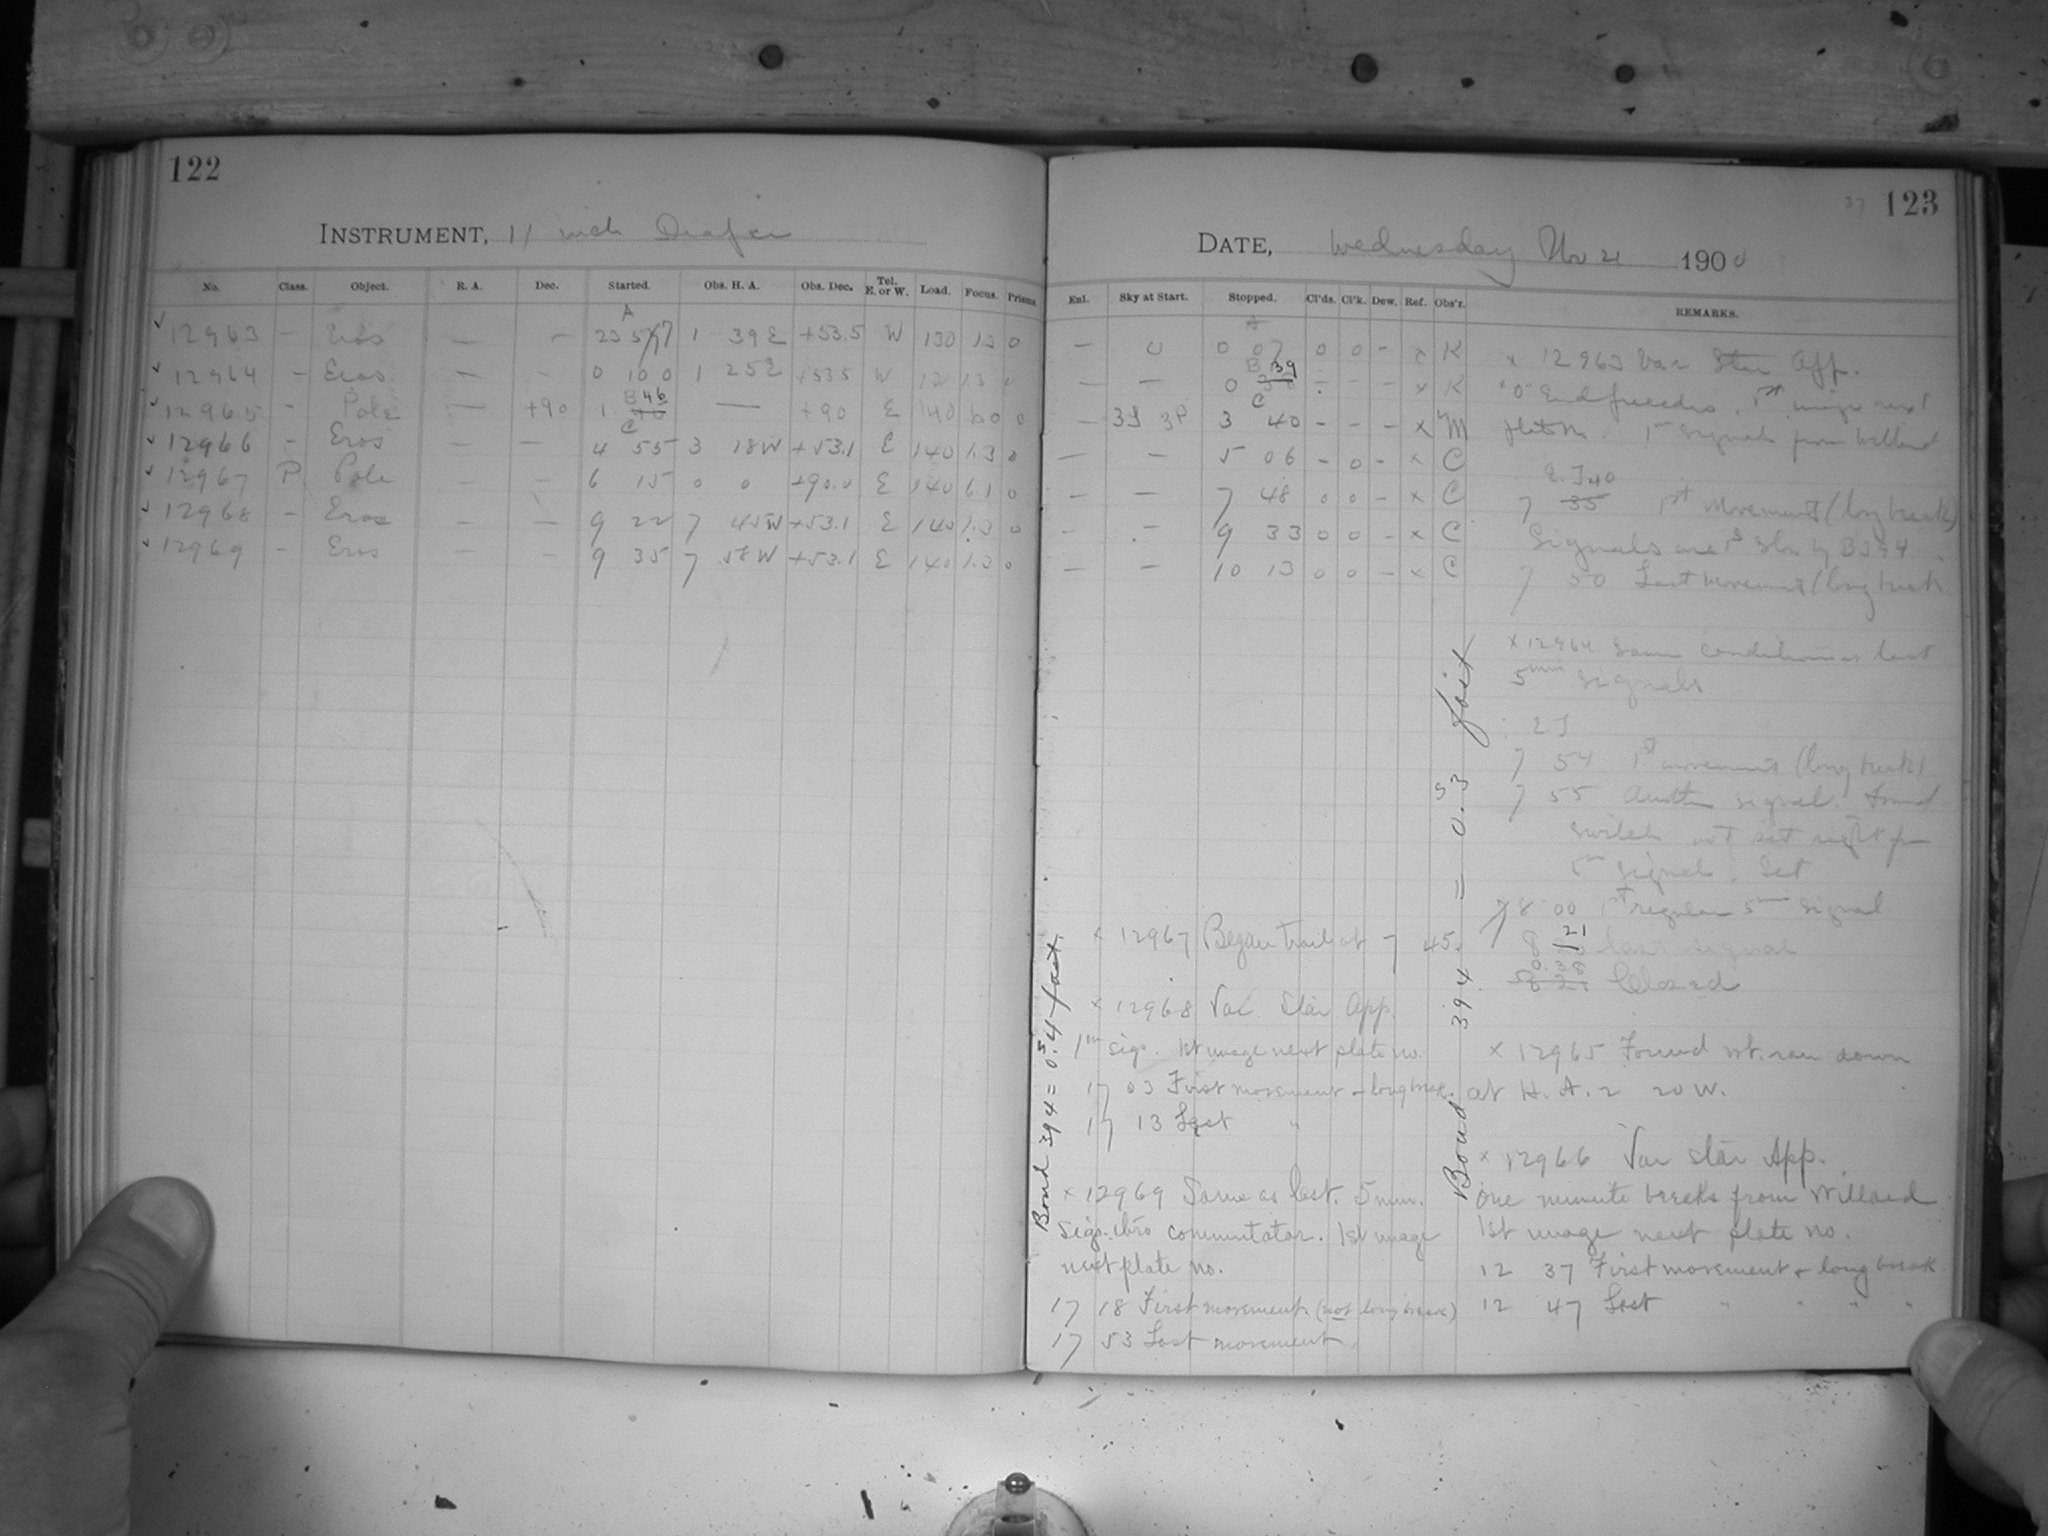 122
INSTRUMENT, 11 inch Draper
No. Class. Object. R. A. Dec. Started. Obs. H. A. Obs. Dec. Tel. E. or W. Load. Focus. Prisms.
A
12963 — Eros — — 23 57 1 39 E +53.5 W 130 13 0
12964 — Eros — — 0 10 0 1 25 E +53.5 W
B 46
12965 - Pole — +90 1 — +90 E 140 0
C
12966 - Eros — — 4 55 3 18 W +53.1 E 140 1.3 0
12967 P Pole — — 6 15 0 0 +90.0 E 140 6.1 0
12968 - Eros — — 9 22 7 45 W +53.1 E 140 1.3 0
12969 - Eros — — 9 35 7 58 W +53.1 E 140 1.3 0
37 123
DATE, Wednesday Nov 21 1900
Enl. Sky at Start. Stopped. Cl'ds. Cl'k. Dew. Ref. Obs'r. REMARKS.
A
— 0 0 07 0 0 - x K
B 39
— — 0 - - - x K
C
— 3 40 - - - x M
— — 5 06 - 0 - x C
— — 7 48 0 0 - x C
- - 9 33 0 0 - x C
— — 10 13 0 0 - x C
x 12963 Var Star App.
1st image next
plate no. 1m signals from Willard
E. T. 40
7 35 1st Movement (long break)
Signals are slow by B394
7 50 Last movement (long break
x 12964 Same condition as last
5min signals
E T
7 54 1st movement (long break)
7 55 Another signal. Found
switch not set right for
5m signals. Set
8 00 1st regular 5min signal
21
8 last signal
0.38
Closed
x 12965 Found wt. ran down
at H. A. 2 20 W.
x 12966 Var Star App.
One minute breaks from Willard
1st image next plate no.
12 37 First movement & long break
12 47 Last " " " "
Bond 394 = 0.s3 fast
x 12967 Began trail at 7 45.
x 12968 Var Star App.
1m sigs. 1st image next plate no.
17 03 First movement - long break.
17 13 Last "
x 12969 Same as last. 5 min.
sigs. thro commutator. 1st image
next plate no.
17 18 First movement (not long break)
17 53 Last movement.
Bond 394 = 0.s4 fast.